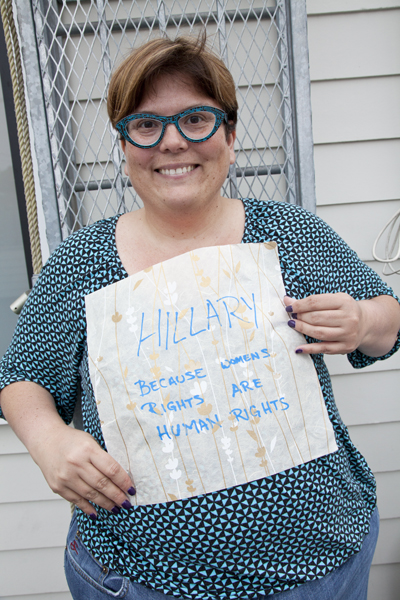 HILLARY
BECAUSE WOMENS
RIGHTS ARE
HUMAN RIGHTS